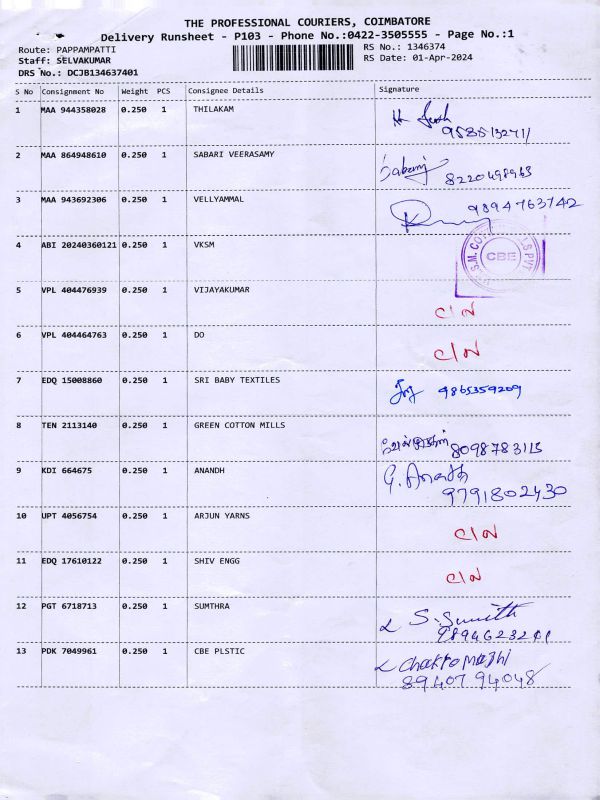 THE PROFESSIONAL COURIERS, COIMBATORE
Delivery Runsheet - P103 - Phone No.:0422-3505555 - Page No.:1
Route: PAPPAMPATTI
RS No.: 1346374
Staff: SELVAKUMAR
RS Date: 01-Apr-2024
DRS No.: DCJB134637401
S No Consignment No Weight PCS Consignee Details Signature
1 MAA 944358028 0.250 1 THILAKAM
9585132711
2 MAA 864948610 0.250 1 SABARI VEERASAMY
Sabari
8220498963
3 MAA 943692306 0.250 1 VELLYAMMAL 9894763742
4 ABI 20240360121 0.250 1 VKSM
CBE
5 VPL 404476939 0.250 1 VIJAYAKUMAR
C/N
6 VPL 404464763 0.250 1 DO
C/N
7 EDQ 15008860 0.250 1 SRI BABY TEXTILES
9865359209
8 TEN 2113140 0.250 1 GREEN COTTON MILLS
8098783113
9 KDI 664675 0.250 1 ANANDH G. Anandh
9791802430
10 UPT 4056754 0.250 1 ARJUN YARNS
C/N
11 EDQ 17610122 0.250 1 SHIV ENGG
C/N
12 PGT 6718713 0.250 1 SUMTHRA S. Sumith
13 PDK 7049961 0.250 1 CBE PLSTIC
8940794048